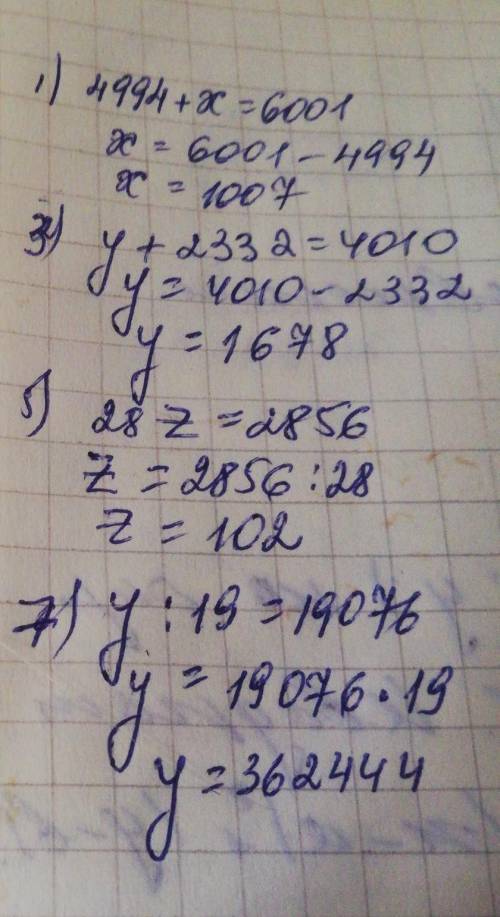 1) 4994+x=6001
x = 6001-4994
x = 1007
3) y + 2332=4010
y = 4010-2332
y = 1678
5) 28 z = 2856
z = 2856:28
z = 102
7) y : 19 = 19076
y = 19076·19
y = 362444